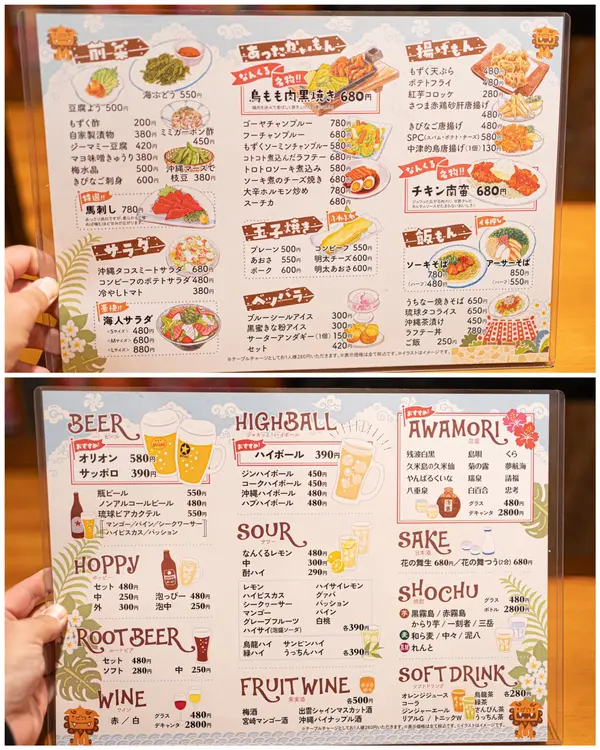 前菜
海ぶどう 550円
豆腐よう 500円
もずく酢 200円
自家製漬物 380円
ジーマミー豆腐 420円
マヨ味噌きゅうり 380円
梅水晶 500円
きびなご刺身 600円
ミミガーポン酢 450円
沖縄マースで枝豆 380円
特選!!
馬刺し 780円
サラダ
沖縄タコスミートサラダ 680円
コンビーフのポテトサラダ 480円
冷やしトマト 380円
海人サラダ
<Sサイズ> 480円
<Mサイズ> 680円
<Lサイズ> 880円
あったかいもん
なんくる名物!!
鳥もも肉黒焼き 680円
ゴーヤチャンプルー 780円
フーチャンプルー 780円
もずくソーミンチャンプルー 780円
コトコト煮込んだラフテー 680円
トロトロソーキ煮込み 580円
ソーキ煮のチーズ焼き 680円
大辛ホルモン炒め 780円
スーチカ 680円
玉子焼き
プレーン 500円
あおさ 550円
ポーク 600円
コンビーフ 550円
明太チーズ 600円
明太あおさ 600円
ベツバラ
ブルーシールアイス 300円
黒蜜きな粉アイス 300円
サーターアンダギー(1個) 150円
セット 420円
揚げもん
もずく天ぷら 480円
ポテトフライ 480円
紅芋コロッケ 280円
さつまき鶏砂肝唐揚げ 480円
きびなご唐揚げ 480円
SPC(スパム・ポテト・チーズ) 580円
中津的鳥唐揚げ(1個) 130円
なんくる名物!!
チキン南蛮 680円
飯もん
イチ押し
ソーキそば 780円
(ハーフ) 480円
アーサーそば 850円
(ハーフ) 550円
うちなー焼きそば 650円
琉球タコライス 650円
沖縄茶漬け 450円
ラフテー丼 780円
ご飯 250円
※テーブルチャージとしてお1人様280円いただきます。※表示価格は全て税込です。※イラストはイメージです。
BEER
ビール
おすすめ!
オリオン 580円
サッポロ 390円
瓶ビール 550円
ノンアルコールビール 480円
琉球ビアカクテル 550円
マンゴー/パイン/シークワーサー
ハイビスカス/パッション
HOPPY
ホッピー
セット 480円
中 250円
外 300円
泡っぴー 480円
泡中 250円
ROOT BEER
ルートビア
セット 480円
ソフト 280円
中 250円
WINE
ワイン
赤/白
グラス 480円
デキャンタ 2800円
HIGHBALL
シュワッと!ハイボール
おすすめ!
ハイボール 390円
ジンハイボール 450円
コークハイボール 450円
沖縄ハイボール 480円
ハブハイボール 480円
SOUR
サワー
なんくるレモン 480円
中 300円
酎ハイ 290円
レモン
ハイビスカス
シークヮーサー
マンゴー
グレープフルーツ
ハイサイ(泡盛ソーダ)
ハイサイレモン
グァバ
パッション
パイン
白桃
各390円
烏龍ハイ サンピンハイ
緑ハイ うっちんハイ 各390円
FRUIT WINE
果実酒
各500円
梅酒
宮崎マンゴー酒
出雲シャインマスカット酒
沖縄パイナップル酒
※テーブルチャージとしてお1人様280円いただきます。※表示価格は全て税込です。※イラストはイメージです。
おすすめ!
AWAMORI
泡盛
残波白黒
久米島の久米仙
やんばるくいな
八重泉
島唄
菊の露
瑞泉
白百合
くら
夢航海
請福
忠孝
グラス 480円
デキャンタ 2800円
SAKE
日本酒
花の舞生 680円/花の舞つう(2合) 680円
SHOCHU
焼酎
グラス 480円
ボトル 2800円
芋 黒霧島/赤霧島
からり芋/一刻者/三岳
麦 和ら麦/中々/泥八
れんと
SOFT DRINK
ソフトドリンク
各280円
オレンジジュース
コーラ
ジンジャーエール
リアルG/トニックW
烏龍茶
緑茶
さんぴん茶
うっちん茶